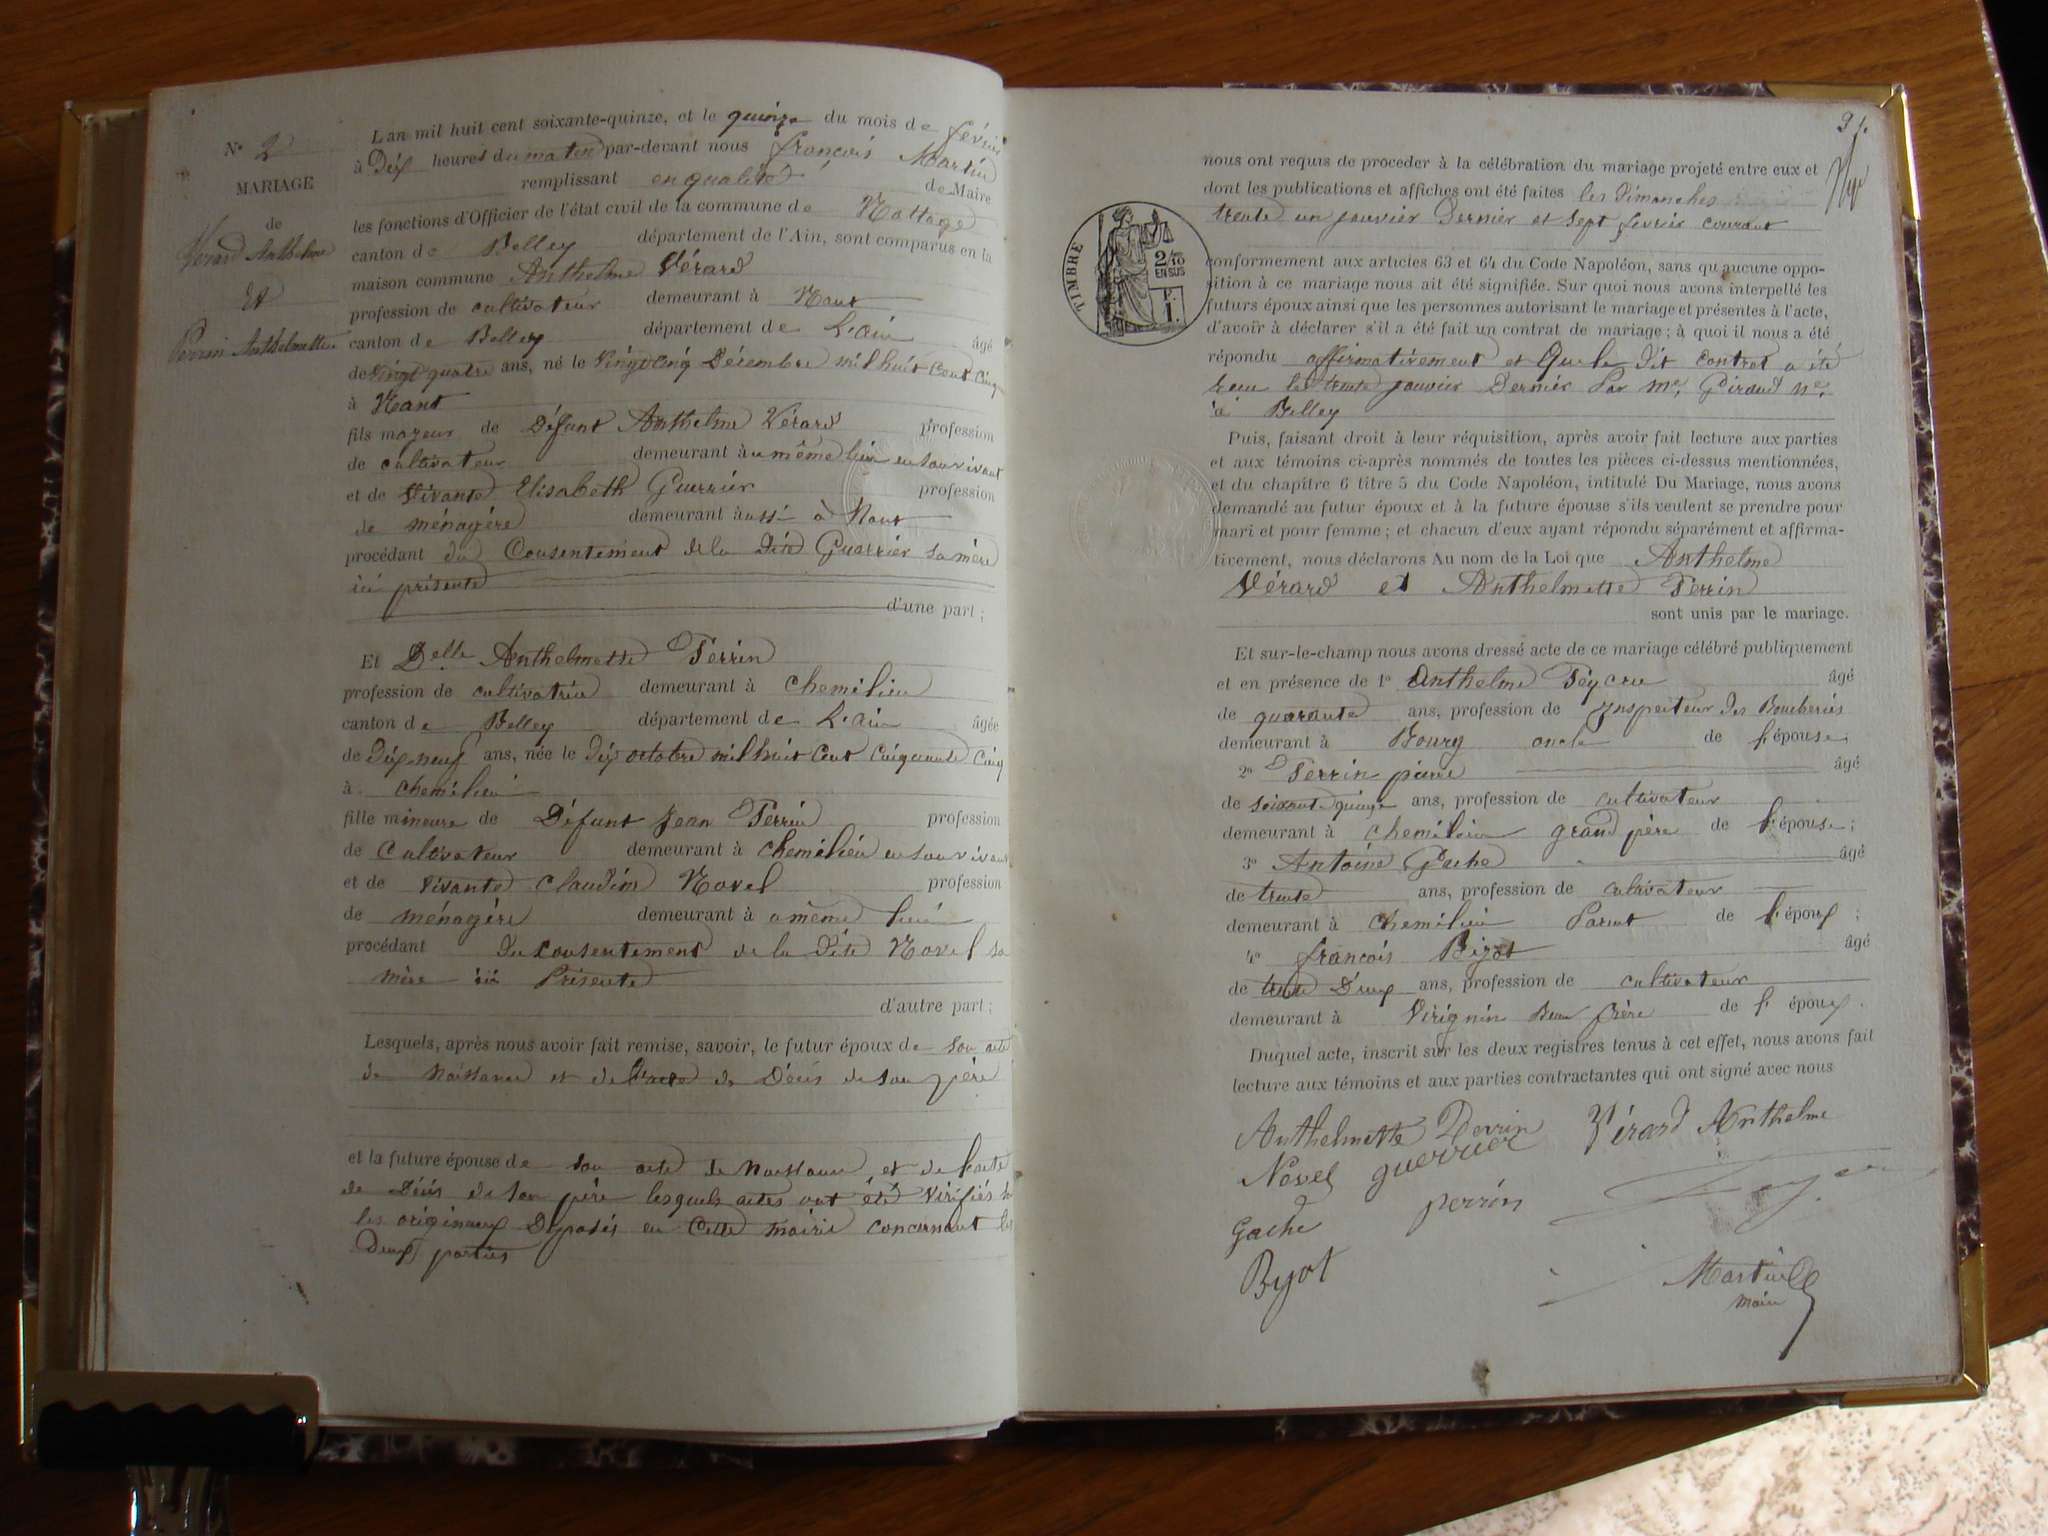 N° 2
MARIAGE
de
Vérard Anthelme
Et
Perrin Anthelmette
L'an mil huit cent soixante-quinze, et le quinze du mois de février
à Dix heures du matin par-devant nous françois Martin
remplissant en qualité de Maire
les fonctions d'Officier de l'état civil de la commune de Nattage
canton de Belley département de l'Ain, sont comparus en la
maison commune Anthelme Vérard
profession de cultivateur demeurant à Nant
canton de Belley département de L'ain âgé
de vingt quatre ans, né le vingt cinq Décembre mil huit cent cinq
à Nant
fils mageur de Défunt Anthelme Vérard profession
de cultivateur demeurant au même lieu en son vivant
et de Vivante Elisabeth Guerrier profession
de ménagère demeurant aussi à Nant
procédant du Consentement de la dite Guerrier sa mère
ici présente
d'une part;
Et Delle Anthelmette Perrin
profession de cultivatrice demeurant à chemilieu
canton de Belley département de L'ain âgée
de Dix neuf ans, née le dix octobre mil huit cent cinquante cinq
à chemilieu
fille mineure de Défunt Jean Perrin profession
de Cultivateur demeurant à chemilieu en son vivant
et de vivante claudine Novel profession
de ménagère demeurant à même lieu
procédant du consentement de la dite Novel sa
mère ici Présente
d'autre part;
Lesquels, après nous avoir fait remise, savoir, le futur époux de son acte
de Naissance et de l'acte de Décès de son père
et la future épouse de son acte de Naissance et de l'acte
de Décès de son père lesquels actes ont été vérifiés
les originaux Déposés en Cette mairie concernant les
Deux parties
91.
nous ont requis de proceder à la célébration du mariage projeté entre eux et
dont les publications et affiches ont été faites les Dimanches
trente un janvier Dernier et sept fevrier courant
TIMBRE
2/10 EN SUS
1.
conformement aux articles 63 et 64 du Code Napoléon, sans qu'aucune oppo-
sition à ce mariage nous ait été signifiée. Sur quoi nous avons interpellé les
futurs époux ainsi que les personnes autorisant le mariage et présentes à l'acte,
d'avoir à déclarer s'il a été fait un contrat de mariage; à quoi il nous a été
répondu affirmativement et Que le dit contrat a été
recu le trente janvier Dernier Par Me, Giraud Ne,
à Belley
Puis, faisant droit à leur réquisition, après avoir fait lecture aux parties
et aux témoins ci-après nommés de toutes les pièces ci-dessus mentionnées,
et du chapître 6 titre 5 du Code Napoléon, intitulé Du Mariage, nous avons
demandé au futur époux et à la future épouse s'ils veulent se prendre pour
mari et pour femme; et chacun d'eux ayant répondu séparément et affirma-
tivement, nous déclarons Au nom de la Loi que Anthelme
Vérard et Anthelmette Perrin
sont unis par le mariage.
Et sur-le-champ nous avons dressé acte de ce mariage célébré publiquement
et en présence de 1° Anthelme Peycru âgé
de quarante ans, profession de Inspecteur des Boucheries
demeurant à Bourg oncle de l'épouse;
2° Perrin pierre âgé
de soixante quinze ans, profession de cultivateur
demeurant à chemilieu grand père de l'épouse;
3° Antoine Gache âgé
de trente ans, profession de cultivateur
demeurant à chemilieu Parent de l'époux;
4° françois Bizot âgé
de trente Deux ans, profession de cultivateur
demeurant à Virignin Beau frère de l'époux.
Duquel acte, inscrit sur les deux registres tenus à cet effet, nous avons fait
lecture aux témoins et aux parties contractantes qui ont signé avec nous
Anthelmette Perrin Vérard Anthelme
Novel guerrier
Gache perrin
Byot
Martin
maire